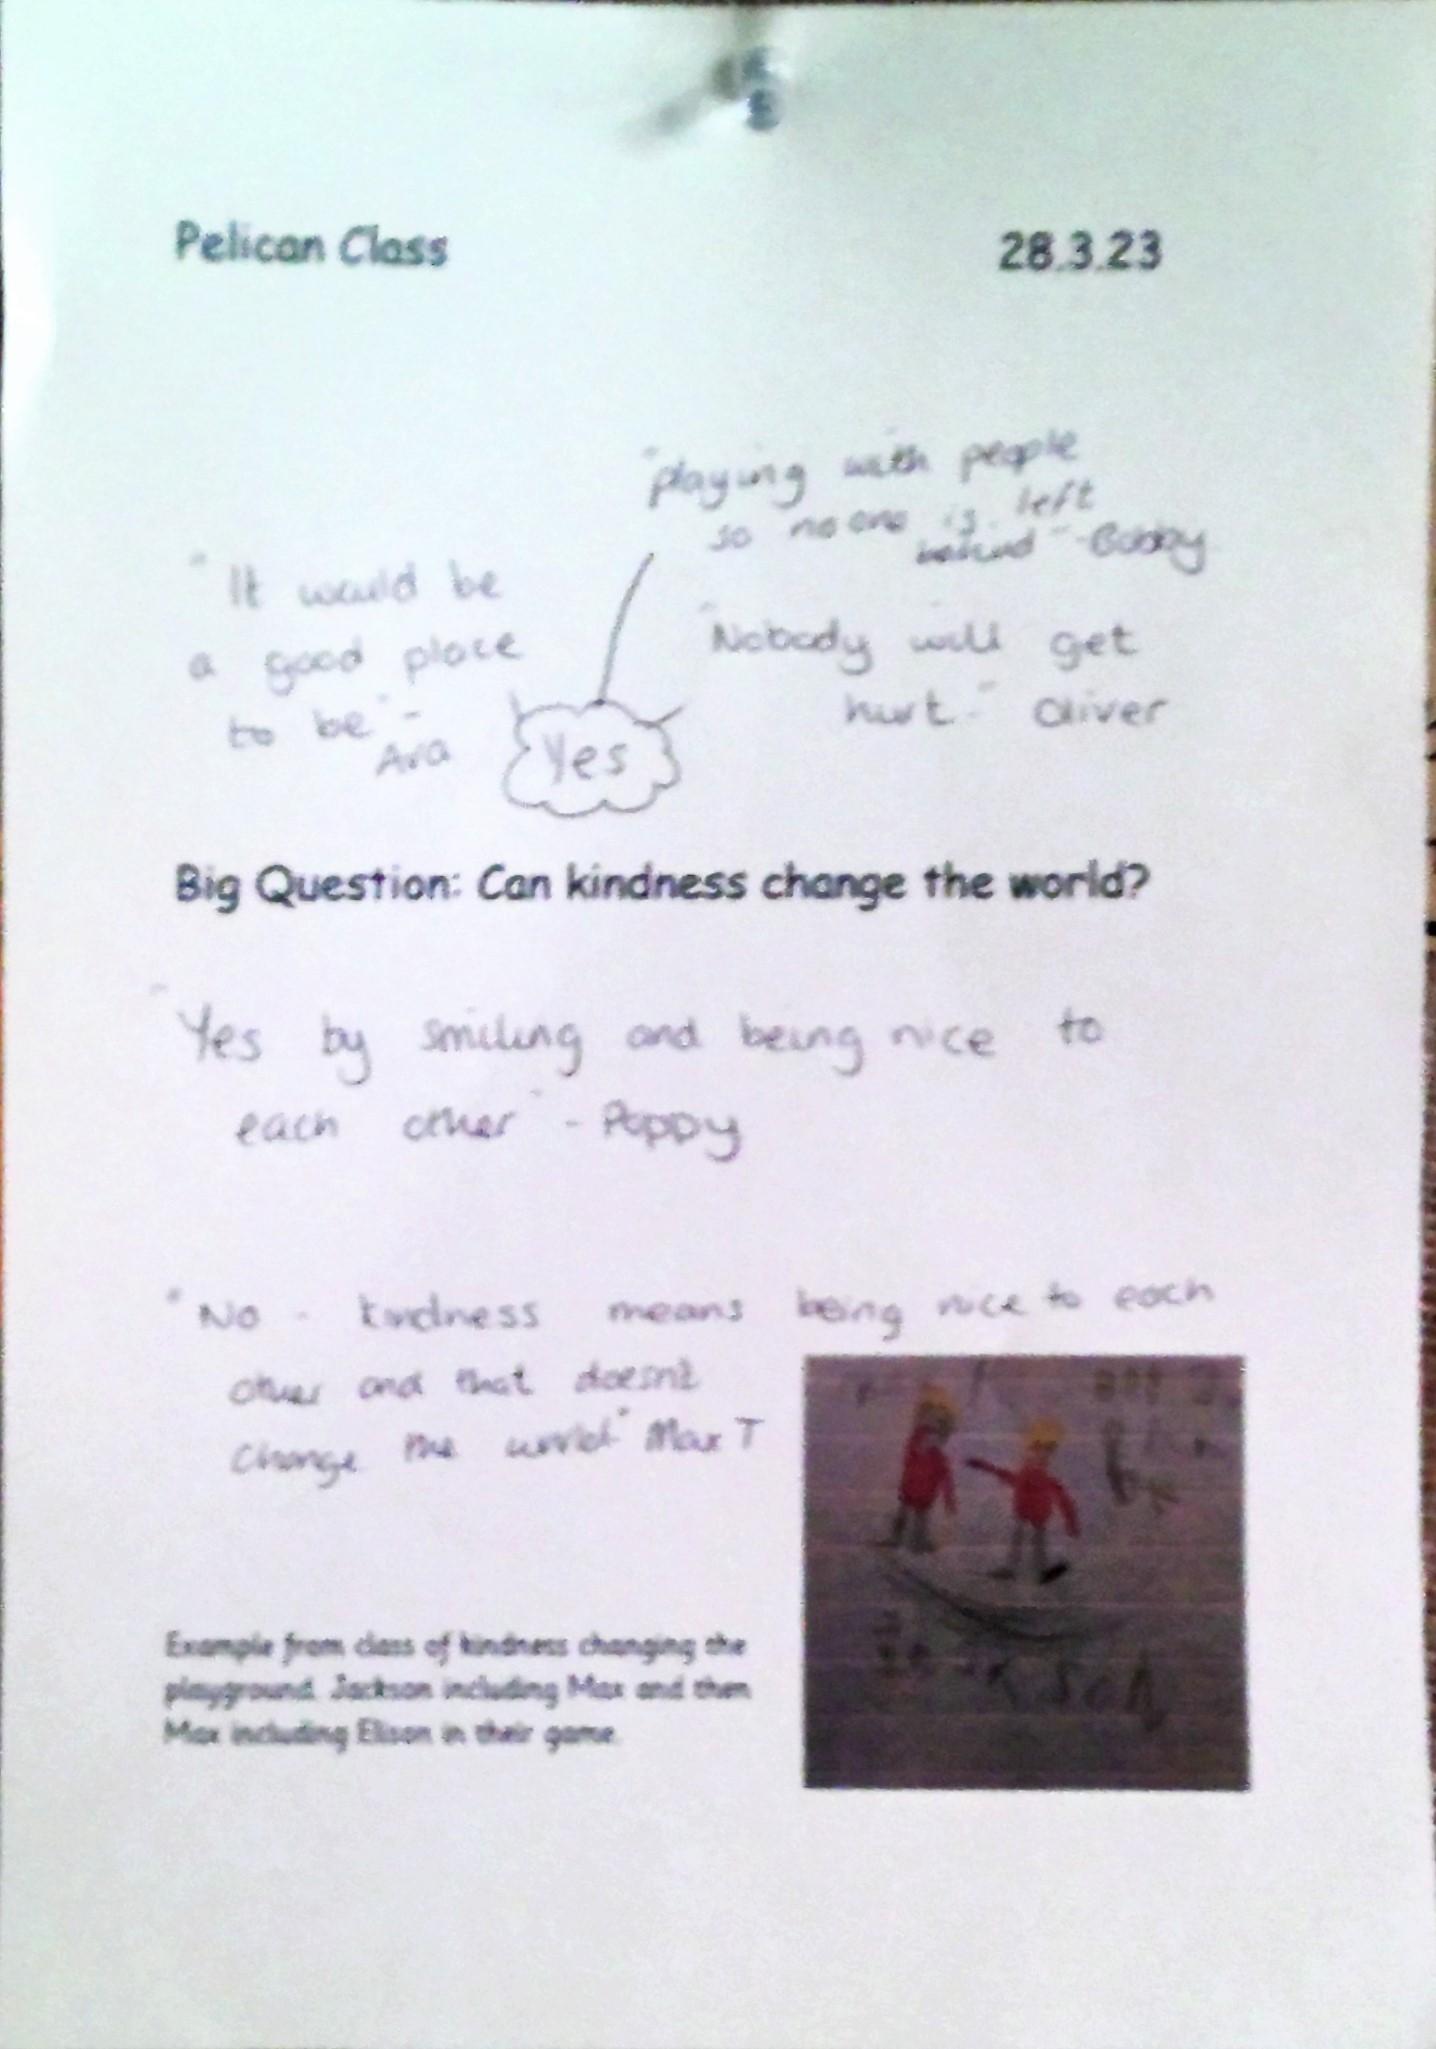 Pelican Class 28.3.23
"playing with people
so no one is left
behind" - Bobby
"It would be
a good place
to be" -
Ava
"Nobody will get
hurt." Oliver
Yes
Big Question: Can kindness change the world?
"Yes by smiling and being nice to
each other" - Poppy
"No - kindness means being nice to each
other and that doesn't
change the world" Max T
Example from class of kindness changing the
playground. Jackson including Max and then
Max including Elison in their game.